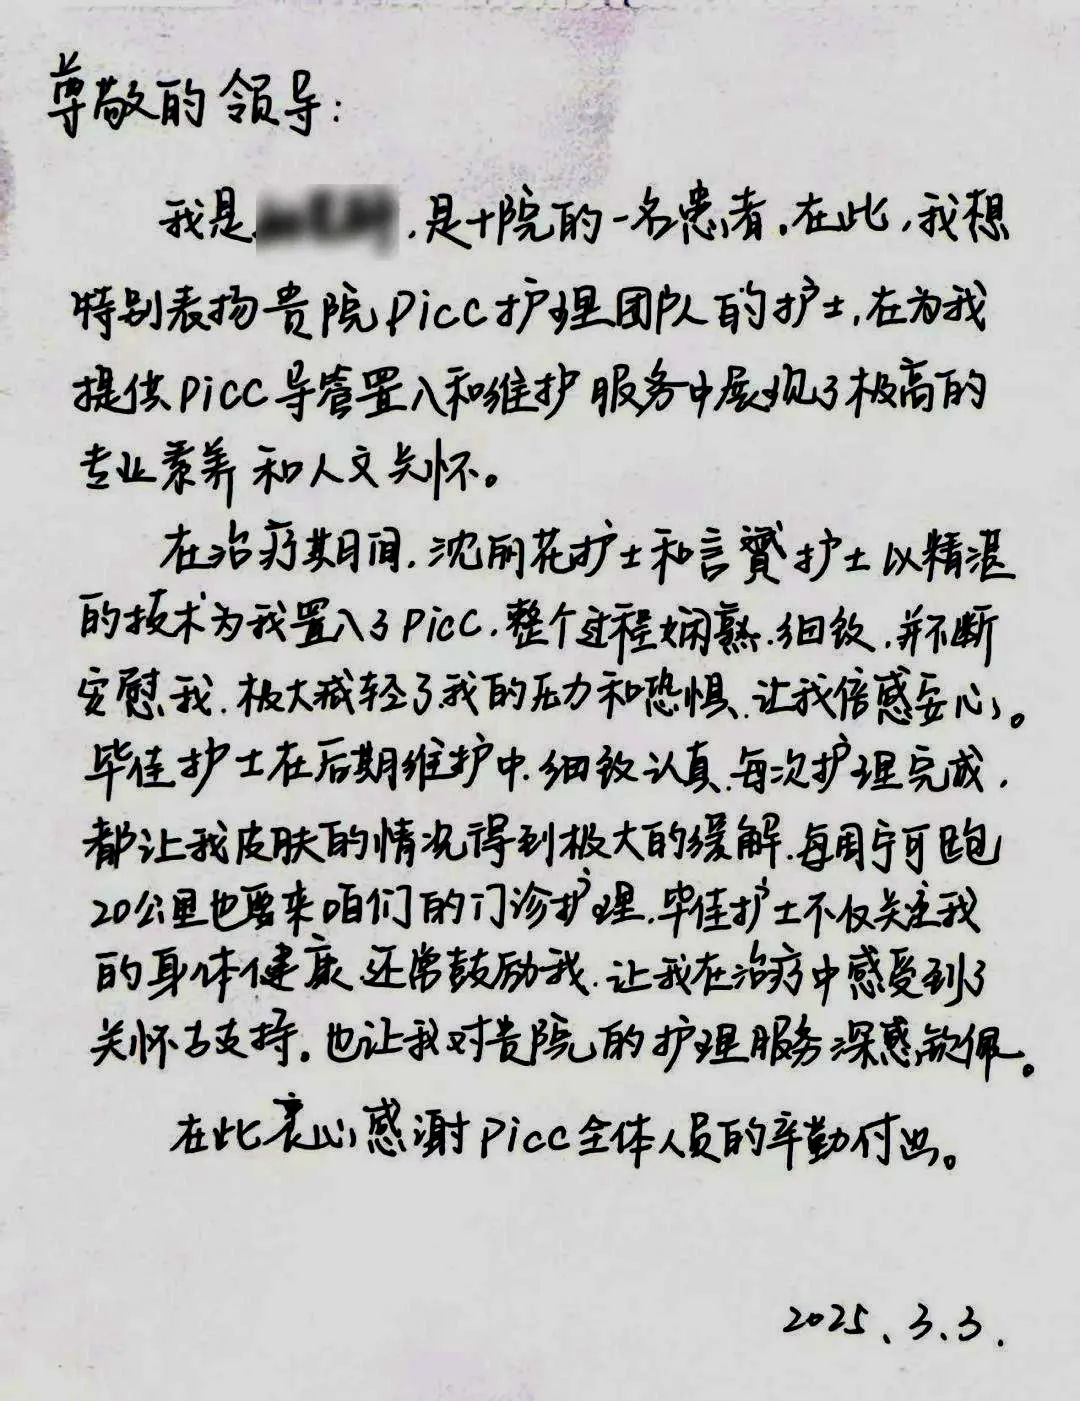 尊敬的领导:
我是 ,是十院的一名患者,在此,我想
特别表扬贵院Picc护理团队的护士,在为我
提供Picc导管置入和维护服务中展现了极高的
专业素养和人文关怀。
在治疗期间,沈丽花护士和言赟护士以精湛
的技术为我置入了Picc,整个过程娴熟、细致,并不断
安慰我,极大减轻了我的压力和恐惧,让我倍感安心。
毕佳护士在后期维护中,细致认真,每次护理完成,
都让我皮肤的情况得到极大的缓解,每周宁可跑
20公里也要来咱们的门诊护理,毕佳护士不仅关注我
的身体健康,还常鼓励我,让我在治疗中感受到了
关怀与支持。也让我对贵院的护理服务深感钦佩。
在此衷心感谢Picc全体人员的辛勤付出。
2025、3、3.